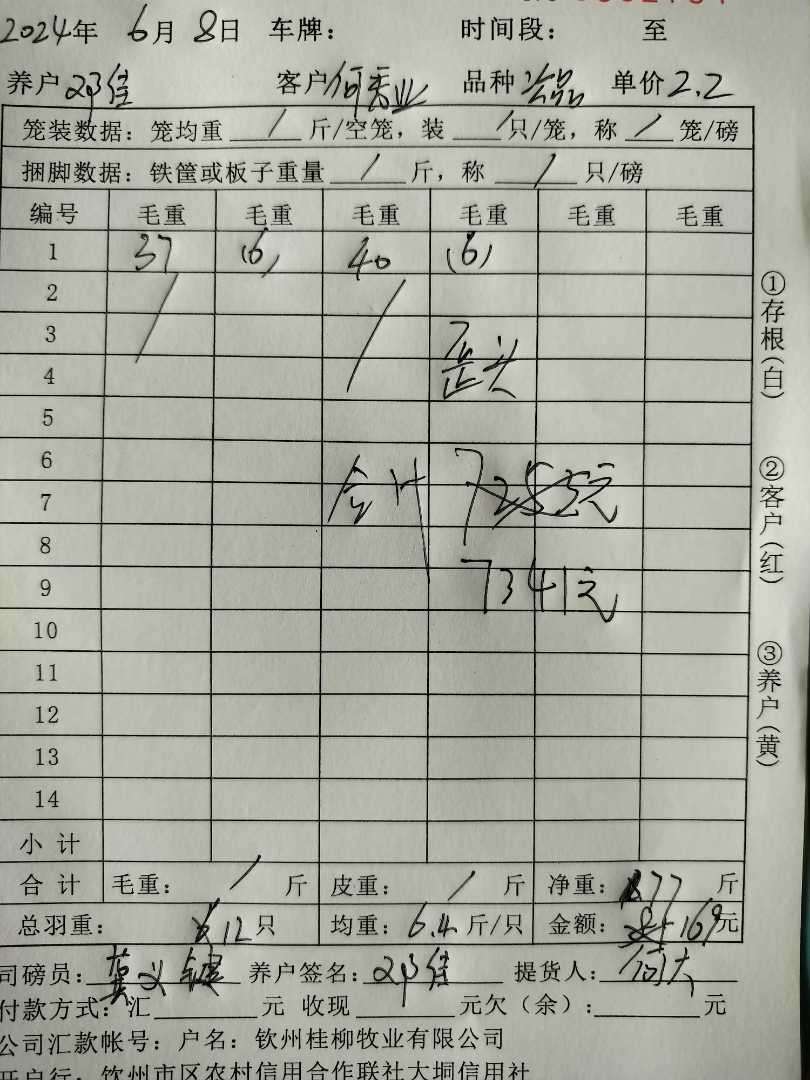 2024年 6月 8日 车牌： 时间段： 至
养户 邓佳 客户 何秀业 品种 次品 单价 2.2
笼装数据：笼均重 / 斤/空笼，装 / 只/笼，称 / 笼/磅
捆脚数据：铁筐或板子重量 / 斤，称 / 只/磅
编号 毛重 毛重 毛重 毛重 毛重 毛重
1 37 (6) 40 (6)
2
3
4 歪头
5
6
7 合计 7255元
8
9 7341元
10
11
12
13
14
小计
合计 毛重： / 斤 皮重： / 斤 净重： 77 斤
总羽重： 12只 均重：6.4斤/只 金额： 169元
司磅员： 养户签名：邓佳 提货人：
付款方式：汇 元 收现 元欠（余）： 元
公司汇款帐号：户名：钦州桂柳牧业有限公司
开户行：钦州市区农村信用合作联社大垌信用社
①存根（白）
②客户（红）
③养户（黄）